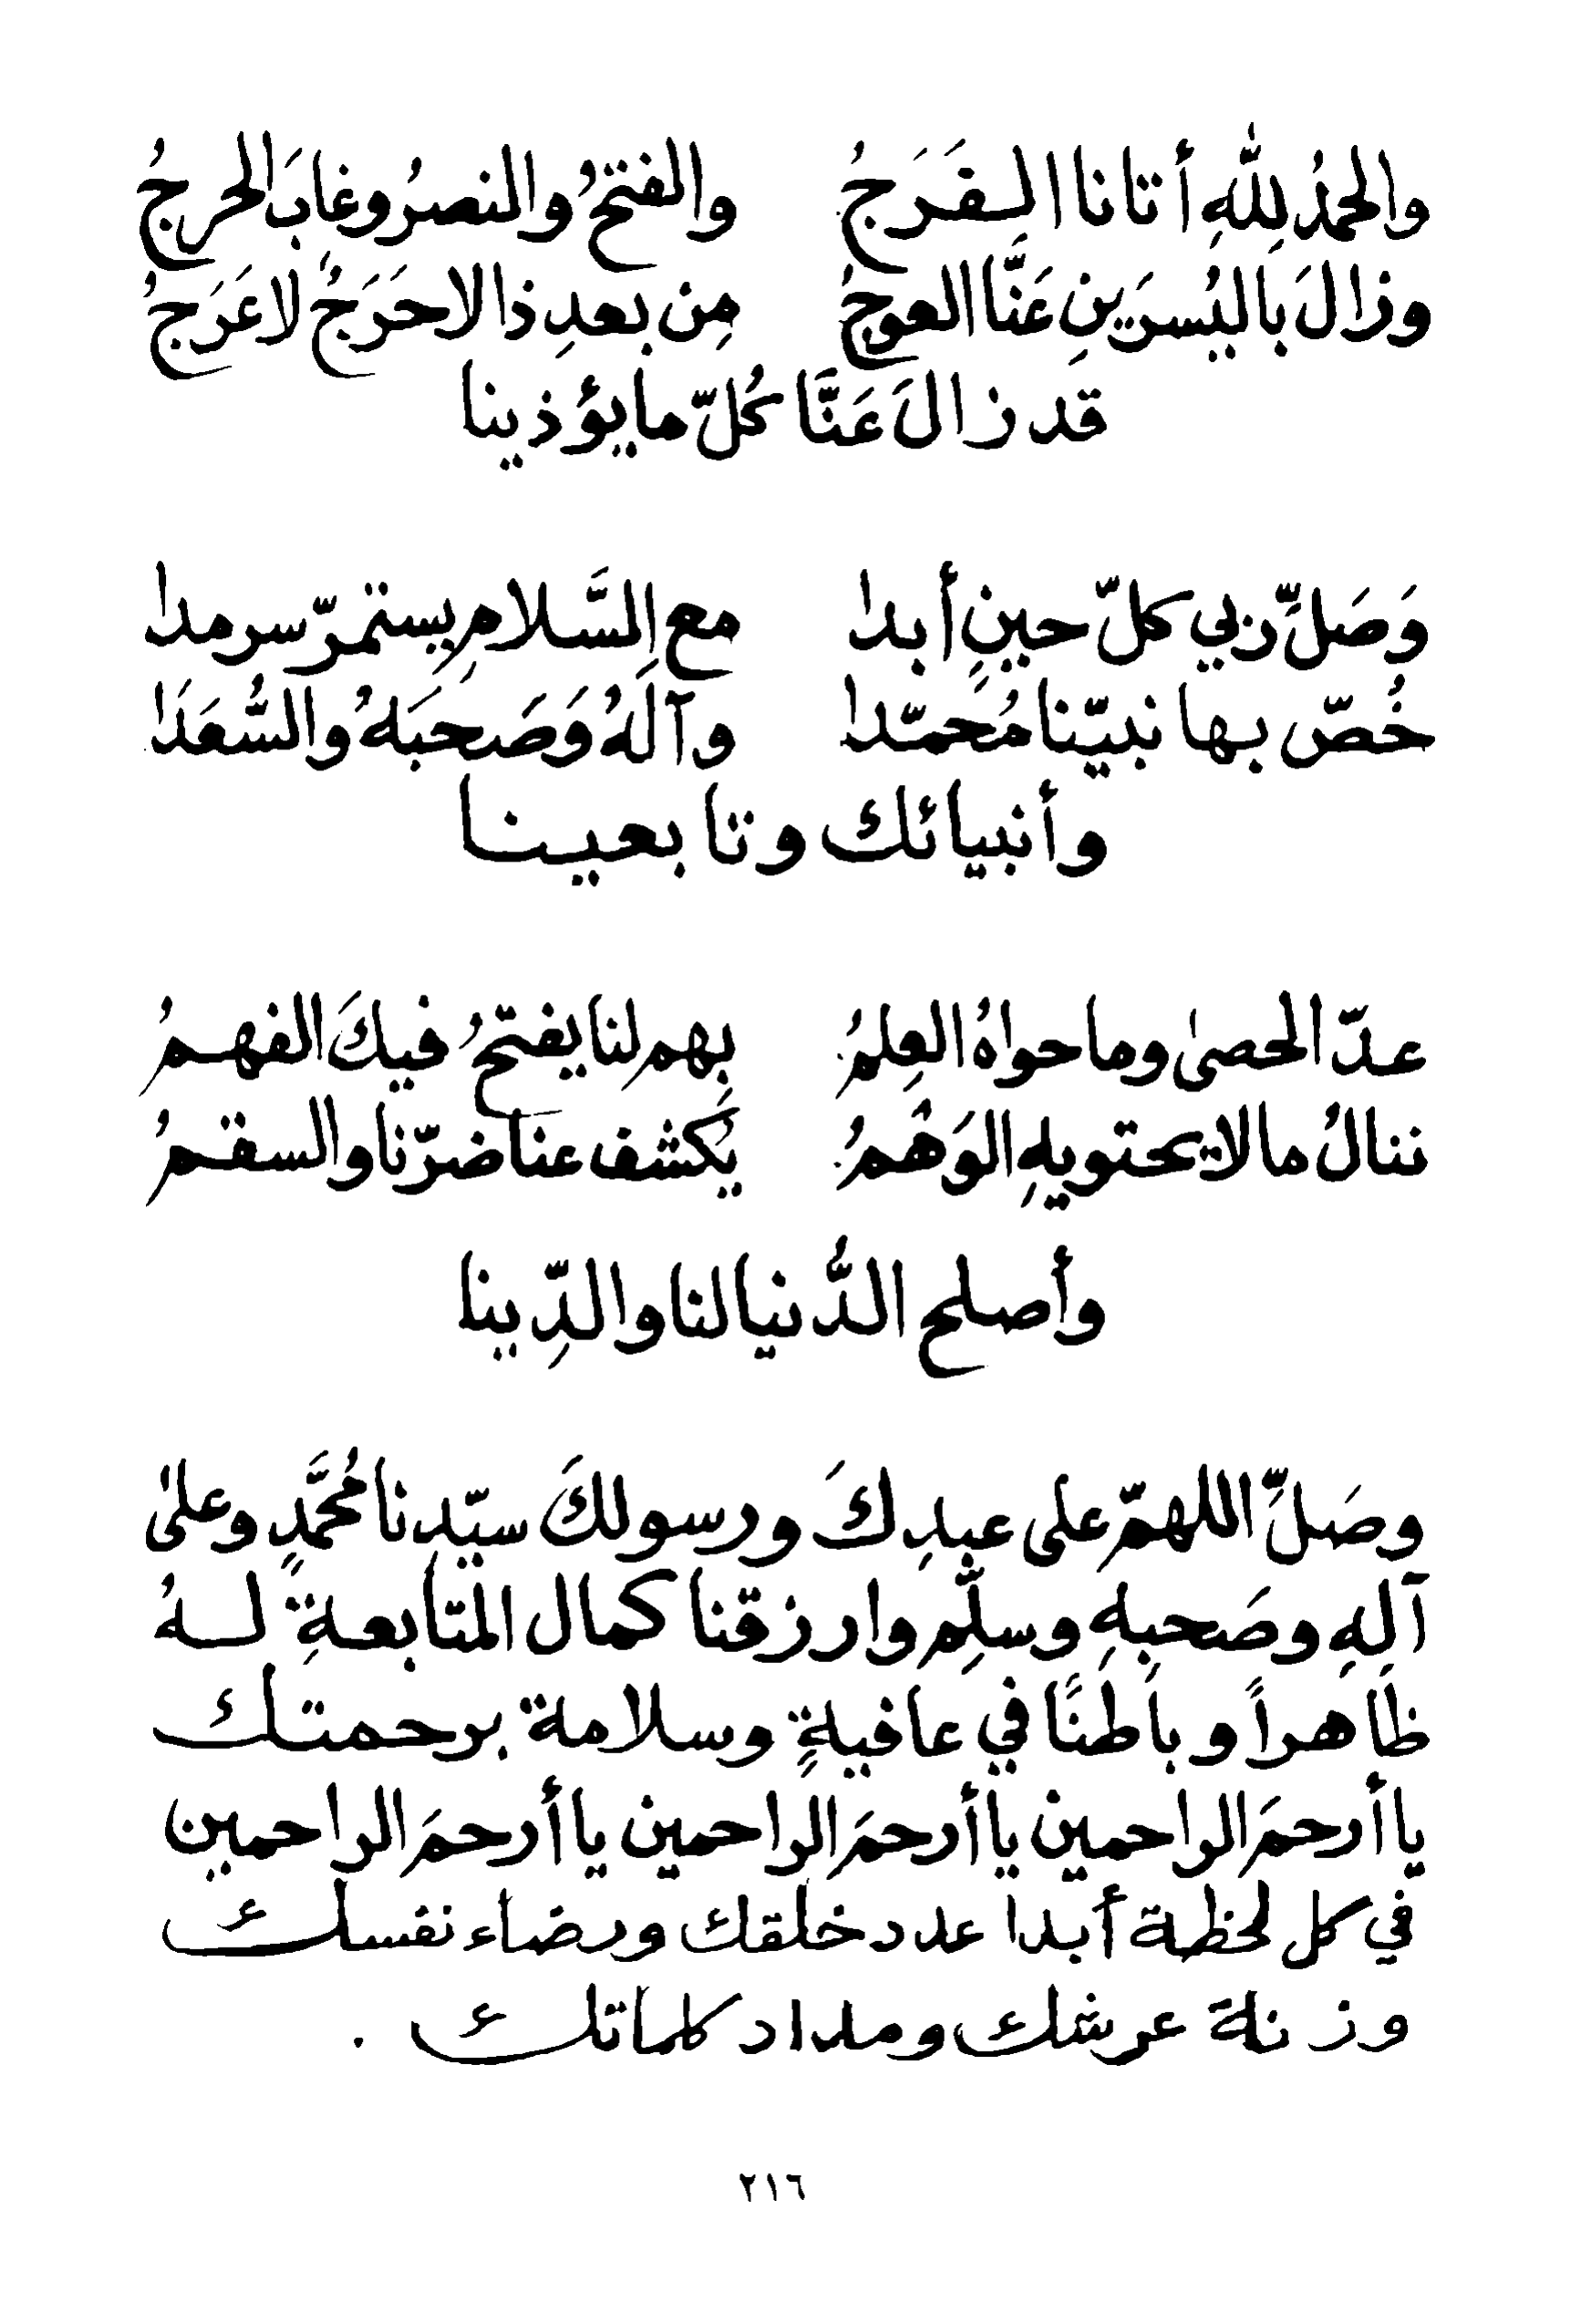 والحمدُ لِلّٰهِ أتانا الـفَـرَجُ والفتحُ والنصرُ وغابَ الحرجُ
وزالَ باليُسرَينِ عَنَّا العوجُ مِن بعدِ ذا لا حَرَجٌ لا عَرَجُ
قد زالَ عَنَّا كُلّ ما يؤذينا
وَصَلِّ ربي كلّ حينٍ أبدا مع السَّلامِ يستمرّ سرمدا
خُصّ بها نبيّنا مُحَمّدا وآلَهُ وَصَحبَهُ والسُّعَدَا
وأنبيائك وتابعينا
عدّ الحصىٰ وما حواهُ العِلمُ بهم لنا يفتحُ فيكَ الفهمُ
ننالُ ما لا يحتويهِ الوَهْمُ يَكشف عنا ضرّنا والسقمُ
وأصلح الدُّنيا لنا والدِّينا
وصَلِّ اللهمّ على عبدِكَ ورسولكَ سيّدنا مُحمَّدٍ وعلىٰ
آلهِ وصَحبهِ وسلِّم وارزقنا كمال المتابعةِ لـهُ
ظاهراً وباطنًا في عافيةٍ وسلامة برحمتك
يا أرحمَ الراحمين يا أرحمَ الراحمين يا أرحمَ الراحمين
في كل لحظة أبدا عدد خلقك ورضاء نفسك
وزنة عرشك ومداد كلماتك .
٢١٦